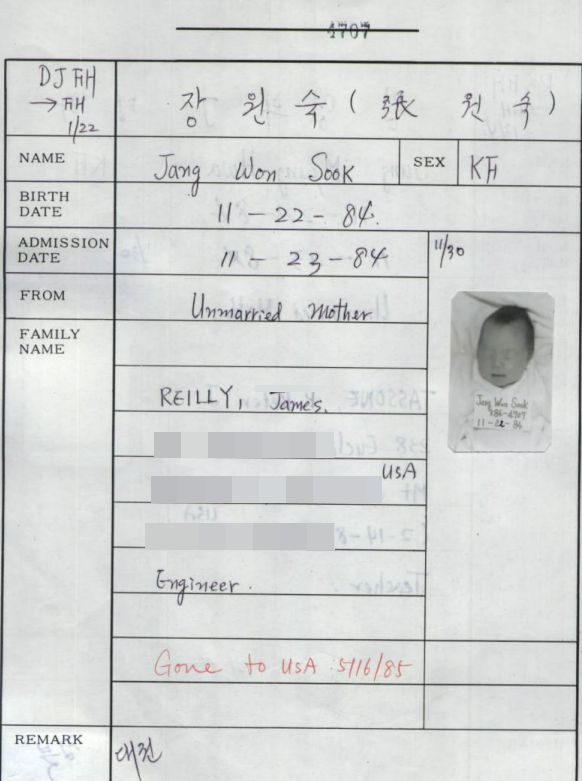 4707
DJ FH
→ FH
1/22
장 원 숙 ( 張 원 숙 )
NAME Jang Won Sook SEX KF
BIRTH DATE 11-22-84.
ADMISSION DATE 11-23-84 11/30
FROM Unmarried Mother
FAMILY NAME
REILLY, James.
USA
Engineer.
Jang Won Sook
K84-4707
11-22-84
Gone to USA 5/16/85
REMARK